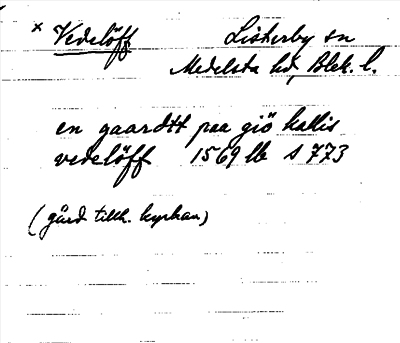 x Vedelöff Listerby sn
Medelsta hd, Blek. l.
en gaardtt paa giö kallis
vedelöff 1569 lb s 773
(gård tillh. kyrkan)